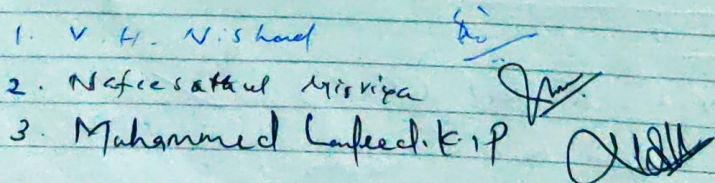 1. V. H. Nishad
2. Nafeesathul Misriya
3. Muhammed K.P